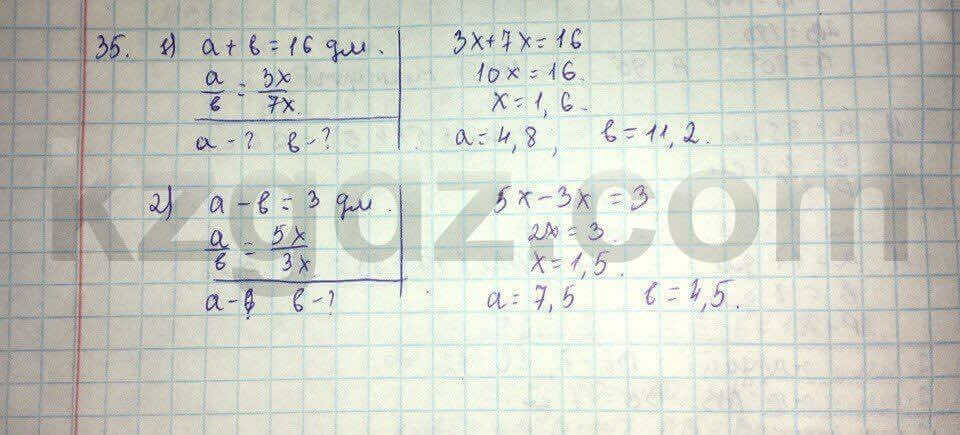 35. 1) a + b = 16 дм. 3x+7x=16
a/b = 3x/7x. 10x = 16.
x = 1,6.
a - ? b - ? a = 4,8; b = 11,2.
2) a - b = 3 дм. 5x - 3x = 3
a/b = 5x/3x 2x = 3.
x = 1,5.
a - ? b - ? a = 7,5 b = 4,5.
kzgdz.com